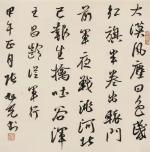 大漠風塵日色昏
紅旗半卷出轅門
前軍夜戰洮河北
已報生擒吐谷渾
王昌齡從軍行
甲午正月張